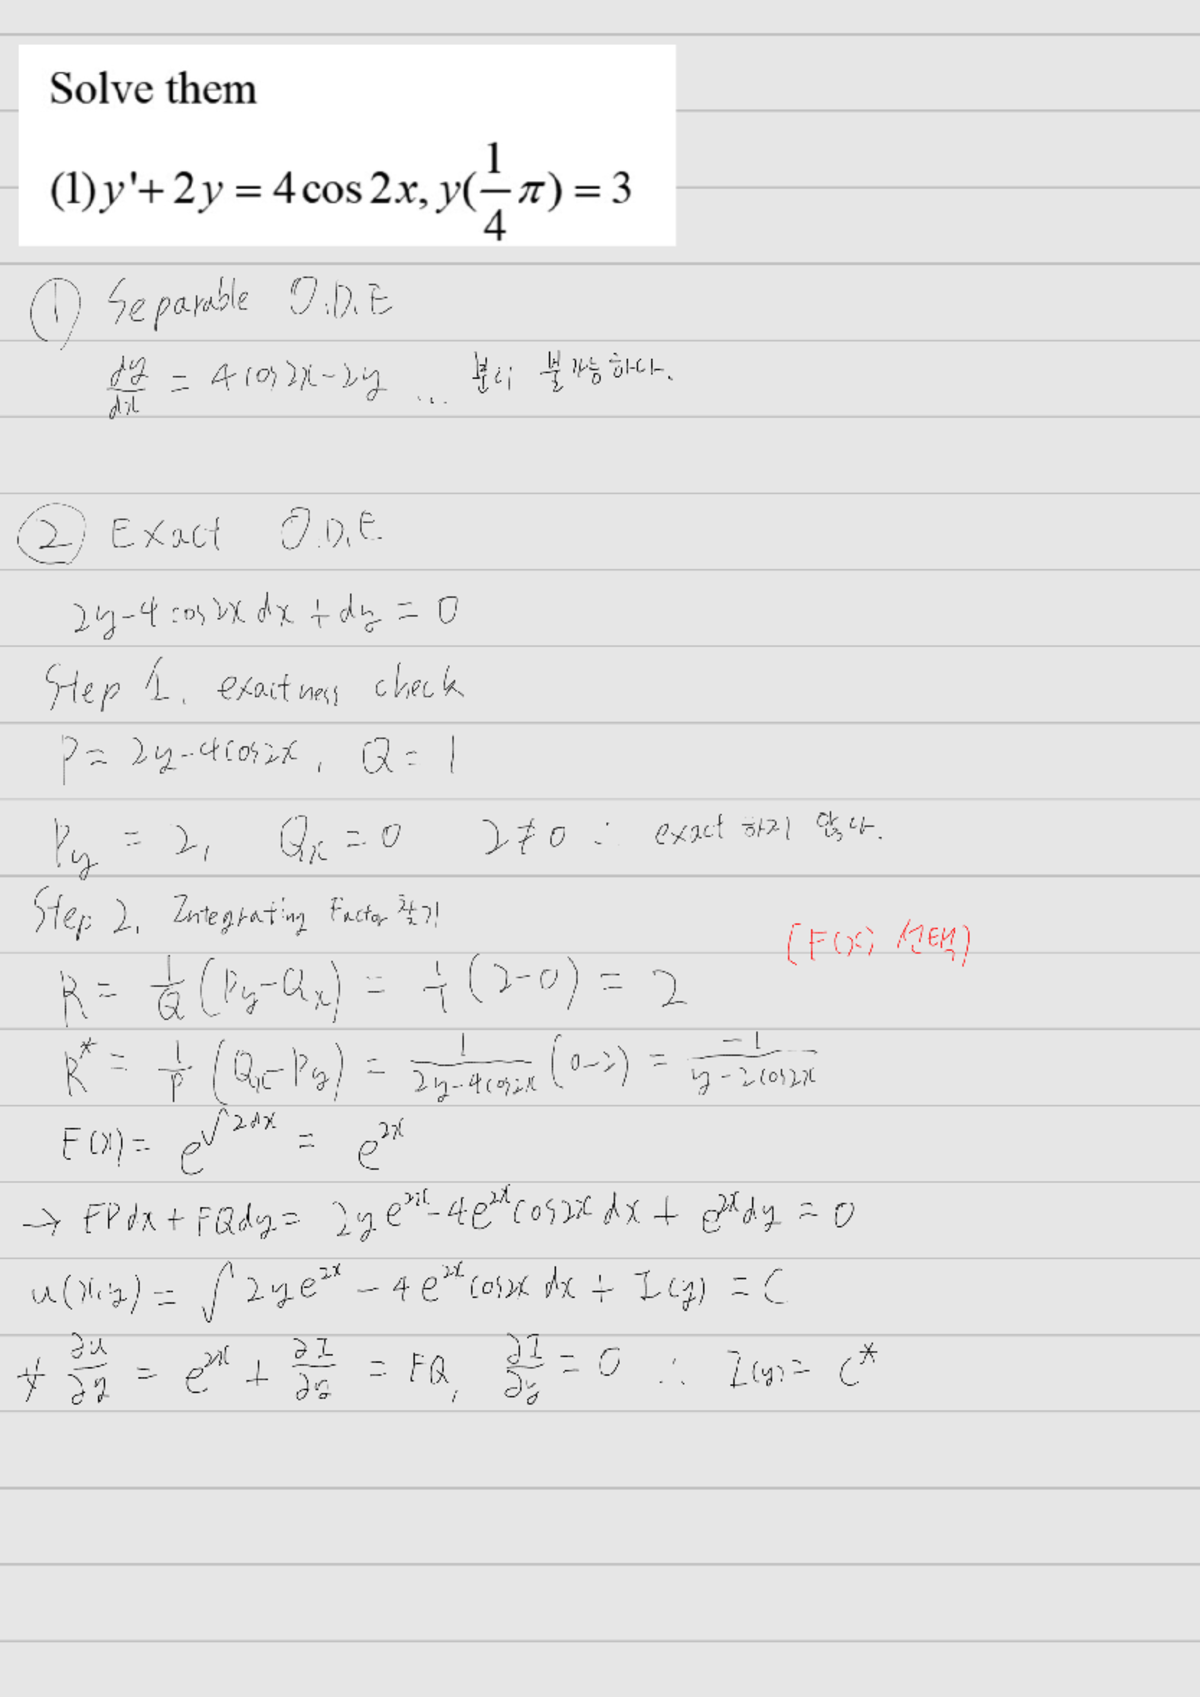 Solve them
(1) y'+ 2y = 4 cos 2x, y(1/4 π) = 3
① Separable O.D.E
dy/dx = 4cos2x-2y ... 분리 불가능하다.
② Exact O.D.E
2y-4cos2x dx + dy = 0
Step 1. exactness check
P = 2y-4cos2x, Q = 1
Py = 2, Qx = 0 2≠0 ∴ exact 하지 않다.
Step 2. Integrating Factor 찾기
(F(x) 선택)
R = 1/Q (Py-Qx) = 1/1 (2-0) = 2
R* = 1/P (Qx-Py) = 1/(2y-4cos2x) (0-2) = -1/(y-2cos2x)
F(x) = e^∫2dx = e^2x
→ FPdx + FQdy = 2ye^2x - 4e^2x cos2x dx + e^2x dy = 0
u(x,y) = ∫2ye^2x - 4e^2x cos2x dx + I(y) = C
* ∂u/∂y = e^2x + ∂I/∂y = FQ, ∂I/∂y = 0 ∴ I(y) = C*